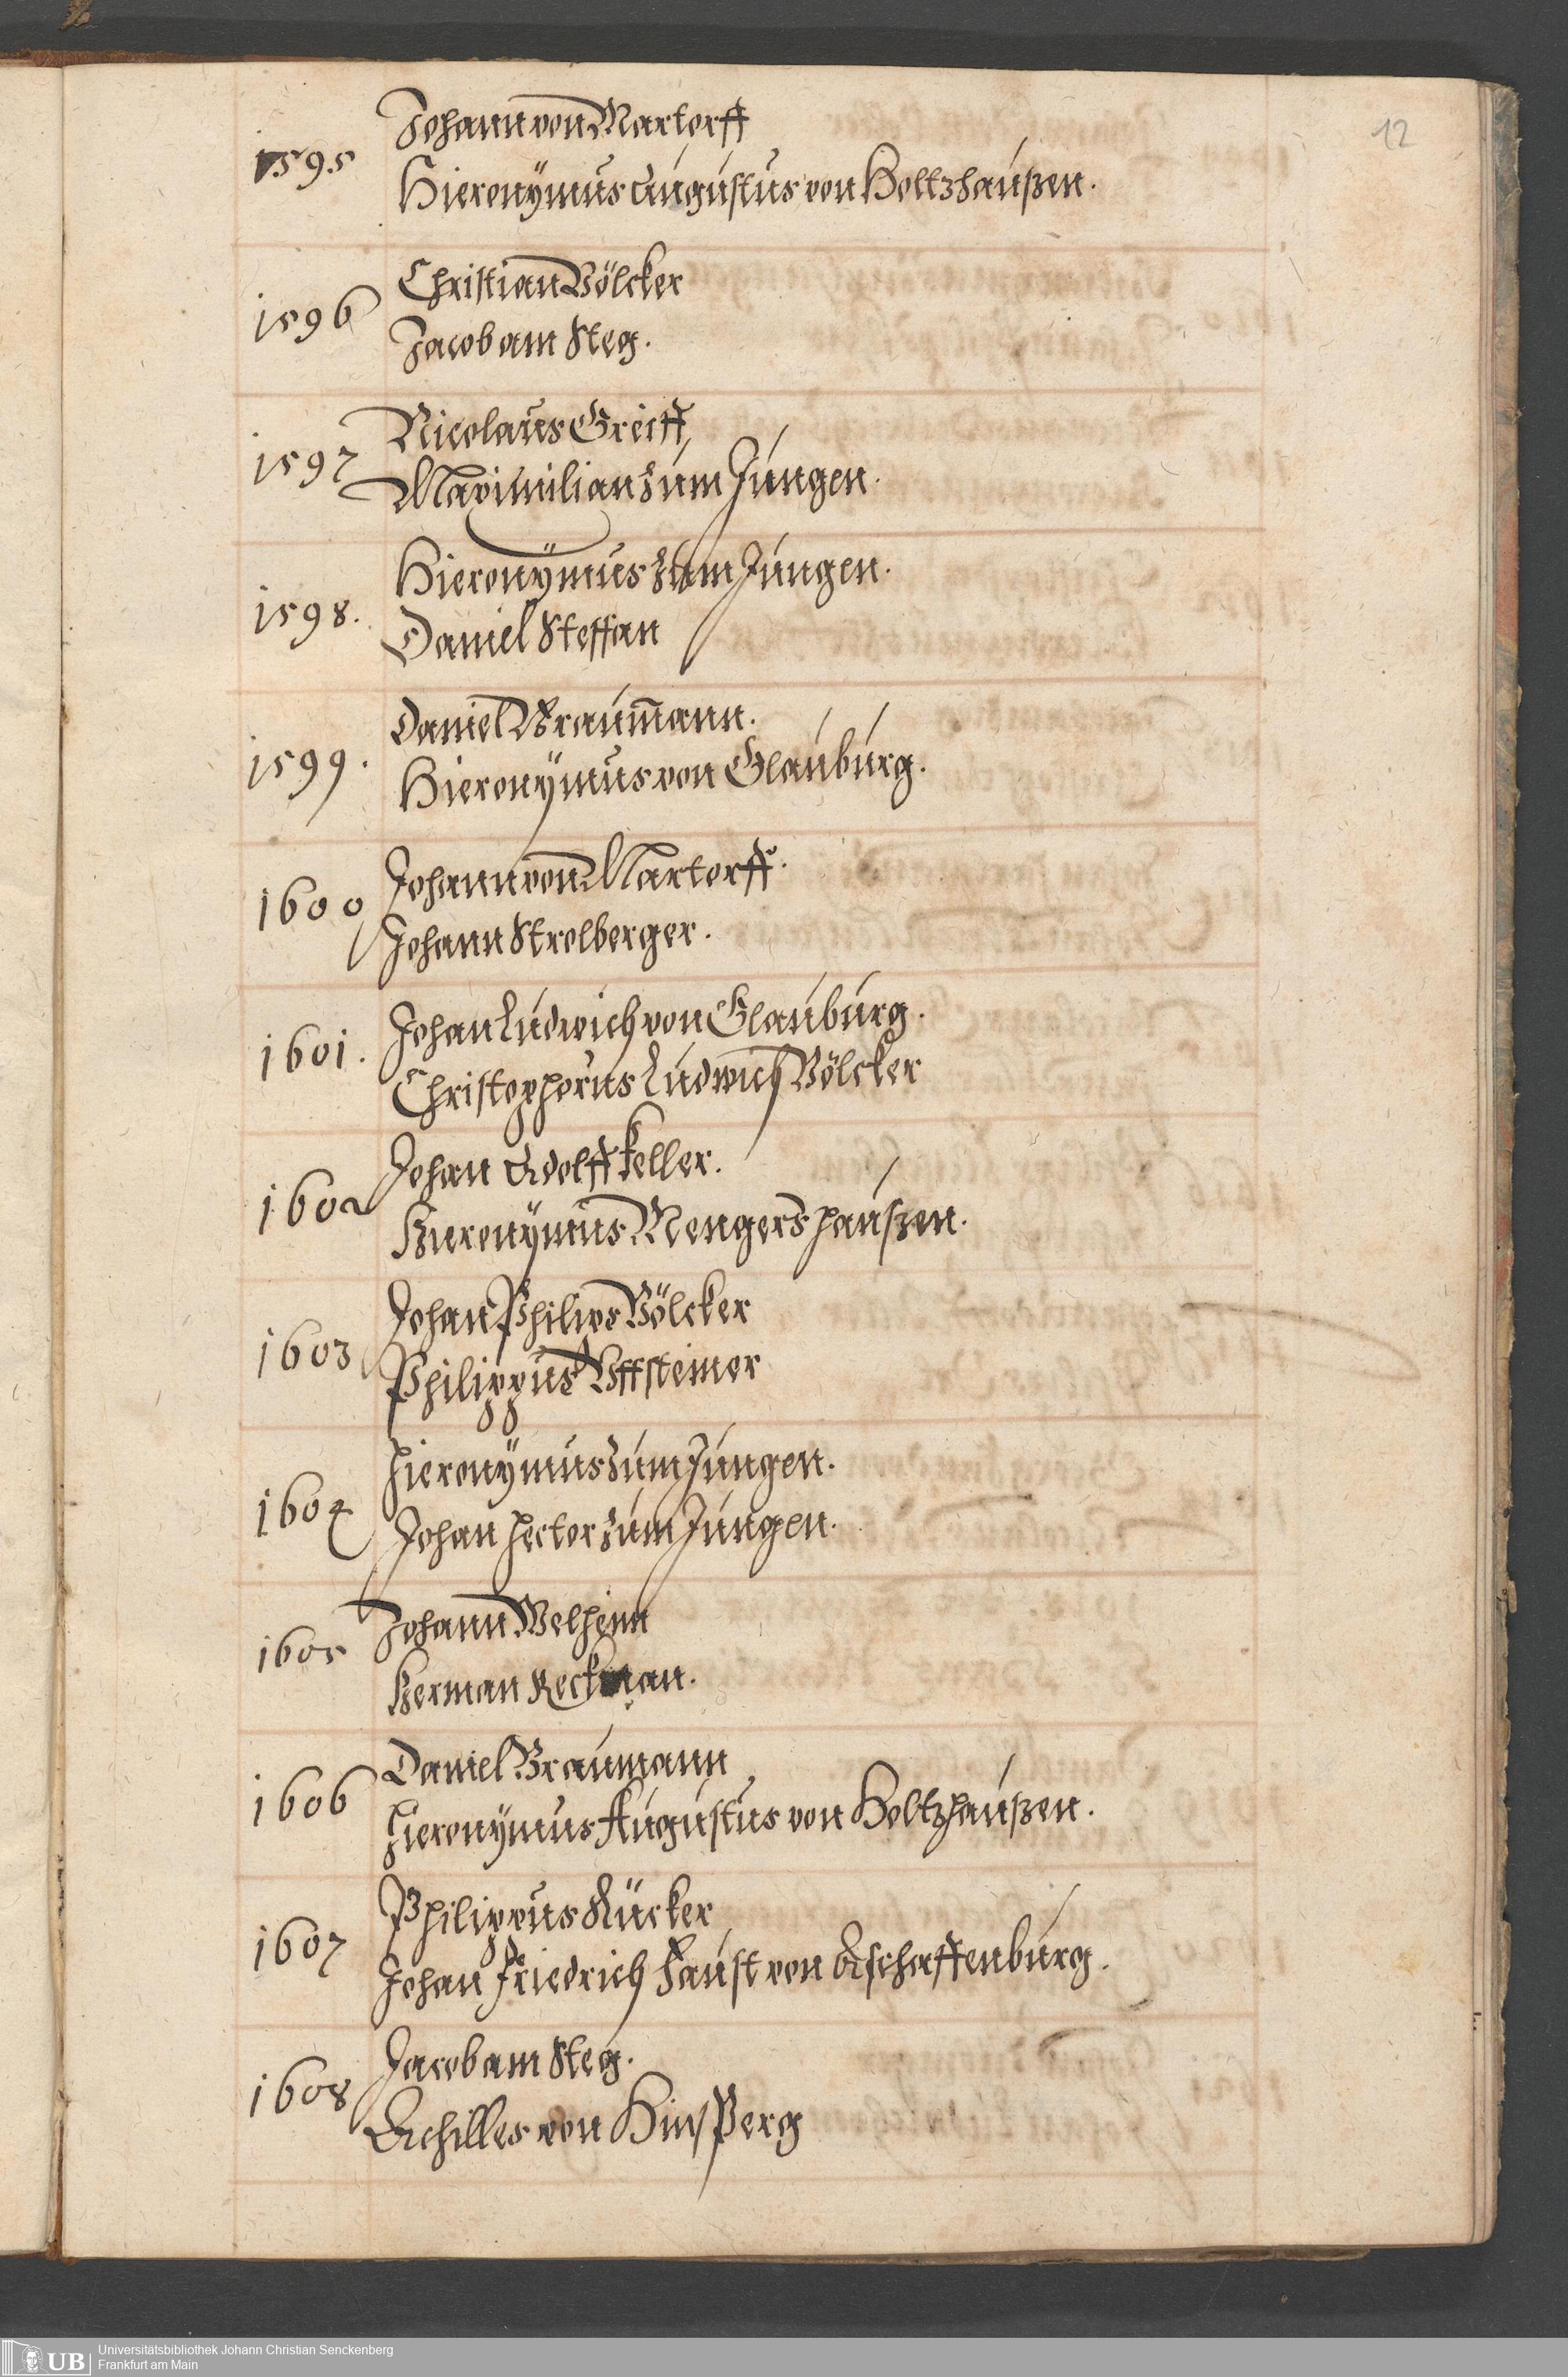 12
1595 Johann von Martorff
Hieronÿmus Augustus von Holtzhaußen.
1596 Christian Völcker
Jacob am Steg.
1597 Nicolaus Greiff
Maximilian zum Jungen.
1598. Hieronÿmus zum Jungen.
Daniel Steffan
1599. Daniel Braum̄ann.
Hieronÿmus von Glauburg.
1600 Johann von Martorff.
Johann Strolberger.
1601. Johan Ludwich von Glauburg.
Christopherus Ludwich Völcker
1602 Johan Adolff Keller.
Hieronÿmus Mengershaußen.
1603 Johan Philips Völcker
Philippus Uffsteiner
1604 Hieronÿmus zum Jungen.
Johan Hector zum Jungen.
1605 Johann Welhenn
Herman Reckman.
1606 Daniel Braumann
Hieronymus Augustus von Holtzhaußen.
1607 Philippus Rücker
Johan Friedrich Faust von Aschaffenburg.
1608 Jacob am Steg.
Achilles von Hinsperg
UB Universitätsbibliothek Johann Christian Senckenberg
Frankfurt am Main